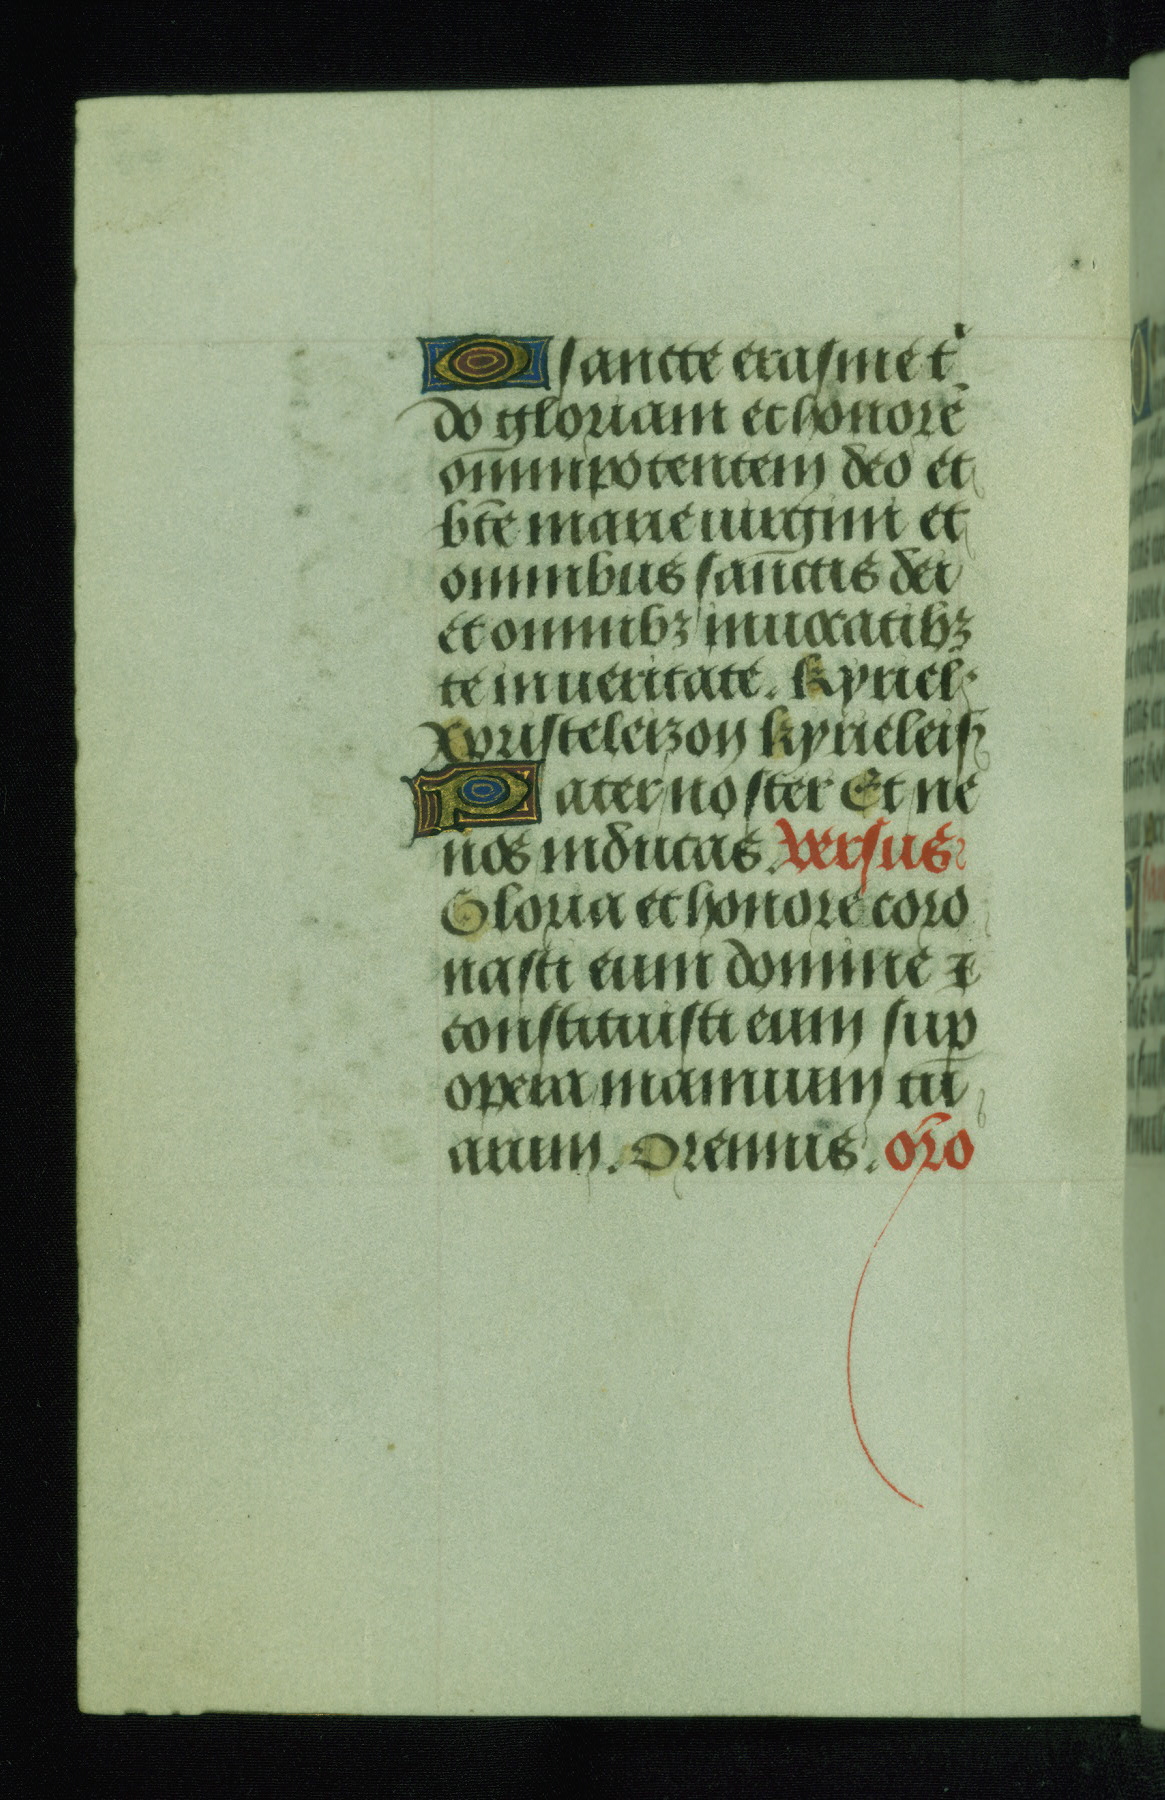 O sancte erasme t
do gloriam et honorē
om̄nipotentem deo et
bt̄e marie uirgini et
omnibus san̄ctis dei
et omnibꝫ inuocatibꝫ
te in ueritate. kyriel
Xpristeleizon kyrieleis
Pater noster Et ne
nos inducas. Versus
Gloria et honore coro
nasti eum domine ⁊
constituisti eum sup
opera manuum tu
arum. Oremus. oro